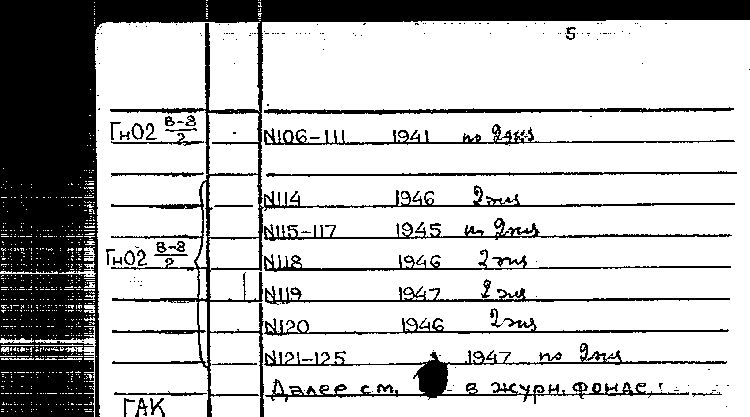 5
ГнО2 В-8/2 N106-111 1941 по 2экз
N114 1946 2экз
N115-117 1945 по 2экз
ГнО2 В-8/2 N118 1946 2экз
N119 1947 2экз
N120 1946 2экз
N121-125 1947 по 2экз
Далее см. в журн. фонде.
ГАК